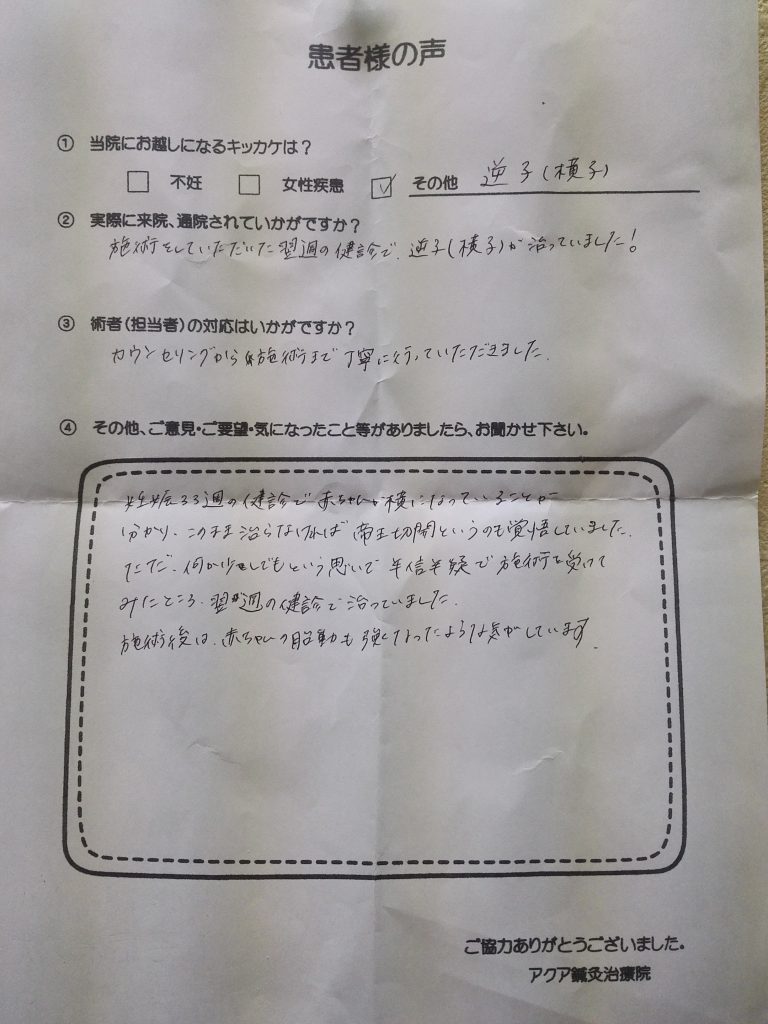 患者様の声
① 当院にお越しになるキッカケは？
不妊 女性疾患 その他 逆子(横子)
② 実際に来院、通院されていかがですか？
施術をしていただいた翌週の健診で、逆子(横子)が治っていました！
③ 術者(担当者)の対応はいかがですか？
カウンセリングから施術まで丁寧に行っていただきました。
④ その他、ご意見・ご要望・気になったこと等がありましたら、お聞かせ下さい。
妊娠33週の健診で赤ちゃんが横になっていることが
分かり、このまま治らなければ帝王切開というのも覚悟していました。
ただ、何か少しでもという思いで半信半疑で施術を受けて
みたところ、翌週の健診で治っていました。
施術後は、赤ちゃんの胎動も強くなったような気がしています。
ご協力ありがとうございました。
アクア鍼灸治療院